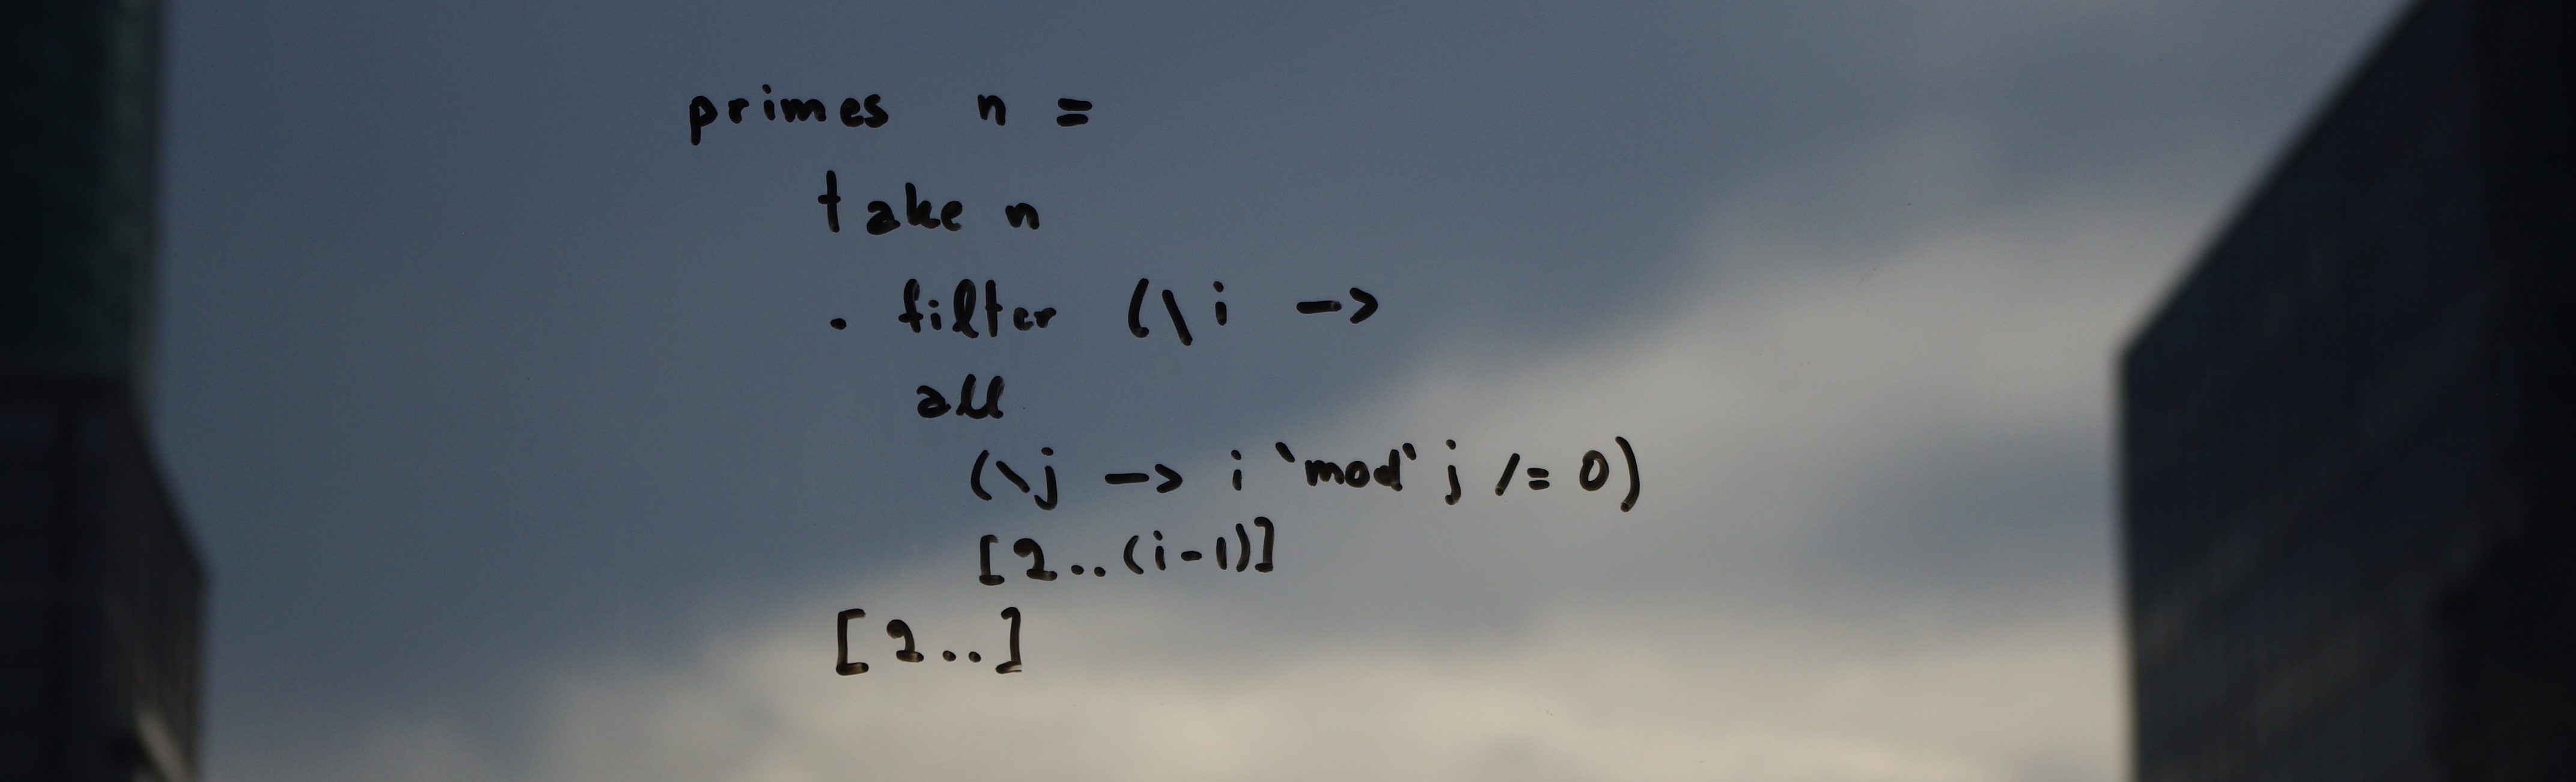 primes n =
take n
. filter (\i ->
all
(\j -> i `mod` j /= 0)
[2..(i-1)]
[2..]